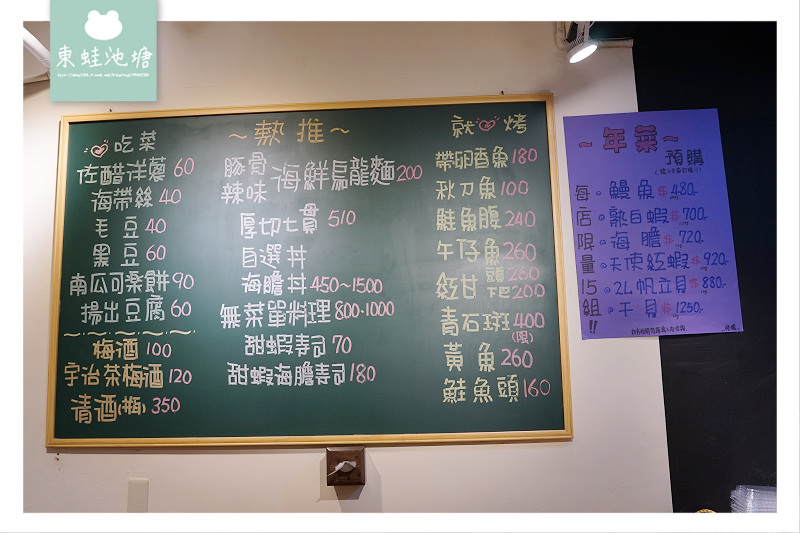 東蛙池塘
吃菜
佐醋洋蔥 60
海帶絲 40
毛豆 40
黑豆 60
南瓜可樂餅 90
揚出豆腐 60
梅酒 100
宇治茶梅酒 120
清酒(瓶) 350
~熱推~
豚骨
辣味 海鮮烏龍麵 200
厚切七貫 510
自選丼
海膽丼 450~1500
無菜單料理 800·1000
甜蝦壽司 70
甜蝦海膽壽司 180
就 烤
帶卵香魚 180
秋刀魚 100
鮭魚腹 240
午仔魚 260
紅甘 頭 260
下巴 200
青石斑 400
(限)
黃魚 260
鮭魚頭 160
~年菜~
預購
每店限量15組!!
鰻魚 480
熟白蝦 700
海膽 720
天使紅蝦 920
2L帆立貝 880
干貝 1250